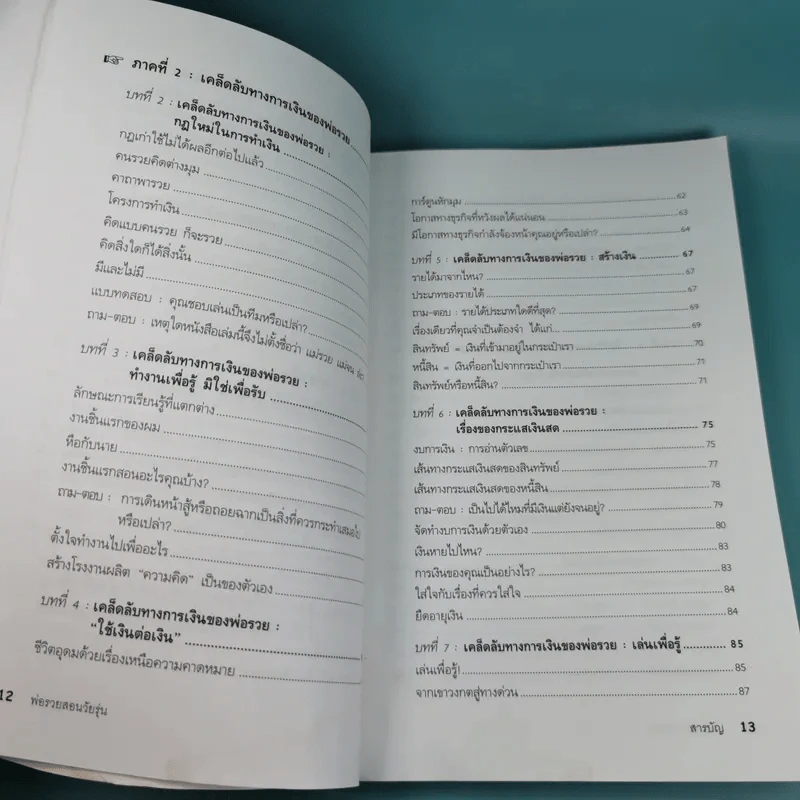 ☞ ภาคที่ 2 : เคล็ดลับทางการเงินของพ่อรวย
บทที่ 2 : เคล็ดลับทางการเงินของพ่อรวย :
กฎใหม่ในการทำเงิน
กฎเก่าใช้ไม่ได้ผลอีกต่อไปแล้ว
คนรวยคิดต่างมุม
คาถาพารวย
โครงการทำเงิน
คิดแบบคนรวย ก็จะรวย
คิดสิ่งใดก็ได้สิ่งนั้น
มีและไม่มี
แบบทดสอบ : คุณชอบเล่นเป็นทีมหรือเปล่า?
ถาม-ตอบ : เหตุใดหนังสือเล่มนี้จึงไม่ตั้งชื่อว่า แม่รวย แม่จน
บทที่ 3 : เคล็ดลับทางการเงินของพ่อรวย :
ทำงานเพื่อรู้ มิใช่เพื่อรับ
ลักษณะการเรียนรู้ที่แตกต่าง
งานชิ้นแรกของผม
หือกับนาย
งานชิ้นแรกสอนอะไรคุณบ้าง?
ถาม-ตอบ : การเดินหน้าสู้หรือถอยฉากเป็นสิ่งที่ควรกระทำเสมอไป
หรือเปล่า?
ตั้งใจทำงานไปเพื่ออะไร
สร้างโรงงานผลิต "ความคิด" เป็นของตัวเอง
บทที่ 4 : เคล็ดลับทางการเงินของพ่อรวย :
"ใช้เงินต่อเงิน"
ชีวิตอุดมด้วยเรื่องเหนือความคาดหมาย
12 พ่อรวยสอนวัยรุ่น
การ์ตูนหักมุม 62
โอกาสทางธุรกิจที่หวังผลได้แน่นอน 63
มีโอกาสทางธุรกิจกำลังจ้องหน้าคุณอยู่หรือเปล่า? 64
บทที่ 5 : เคล็ดลับทางการเงินของพ่อรวย : สร้างเงิน 67
รายได้มาจากไหน? 67
ประเภทของรายได้ 67
ถาม-ตอบ : รายได้ประเภทใดดีที่สุด? 69
เรื่องเดียวที่คุณจำเป็นต้องจำ ได้แก่... 69
สินทรัพย์ = เงินที่เข้ามาอยู่ในกระเป๋าเรา 70
หนี้สิน = เงินที่ออกไปจากกระเป๋าเรา 71
สินทรัพย์หรือหนี้สิน? 71
บทที่ 6 : เคล็ดลับทางการเงินของพ่อรวย :
เรื่องของกระแสเงินสด 75
งบการเงิน : การอ่านตัวเลข 75
เส้นทางกระแสเงินสดของสินทรัพย์ 77
เส้นทางกระแสเงินสดของหนี้สิน 78
ถาม-ตอบ : เป็นไปได้ไหมที่มีเงินแต่ยังจนอยู่? 79
จัดทำงบการเงินด้วยตัวเอง 80
เงินหายไปไหน? 83
การเงินของคุณเป็นอย่างไร? 83
ใส่ใจกับเรื่องที่ควรใส่ใจ 84
ยืดอายุเงิน 84
บทที่ 7 : เคล็ดลับทางการเงินของพ่อรวย : เล่นเพื่อรู้ 85
เล่นเพื่อรู้! 85
จากเขาวงกตสู่ทางด่วน 87
สารบัญ 13